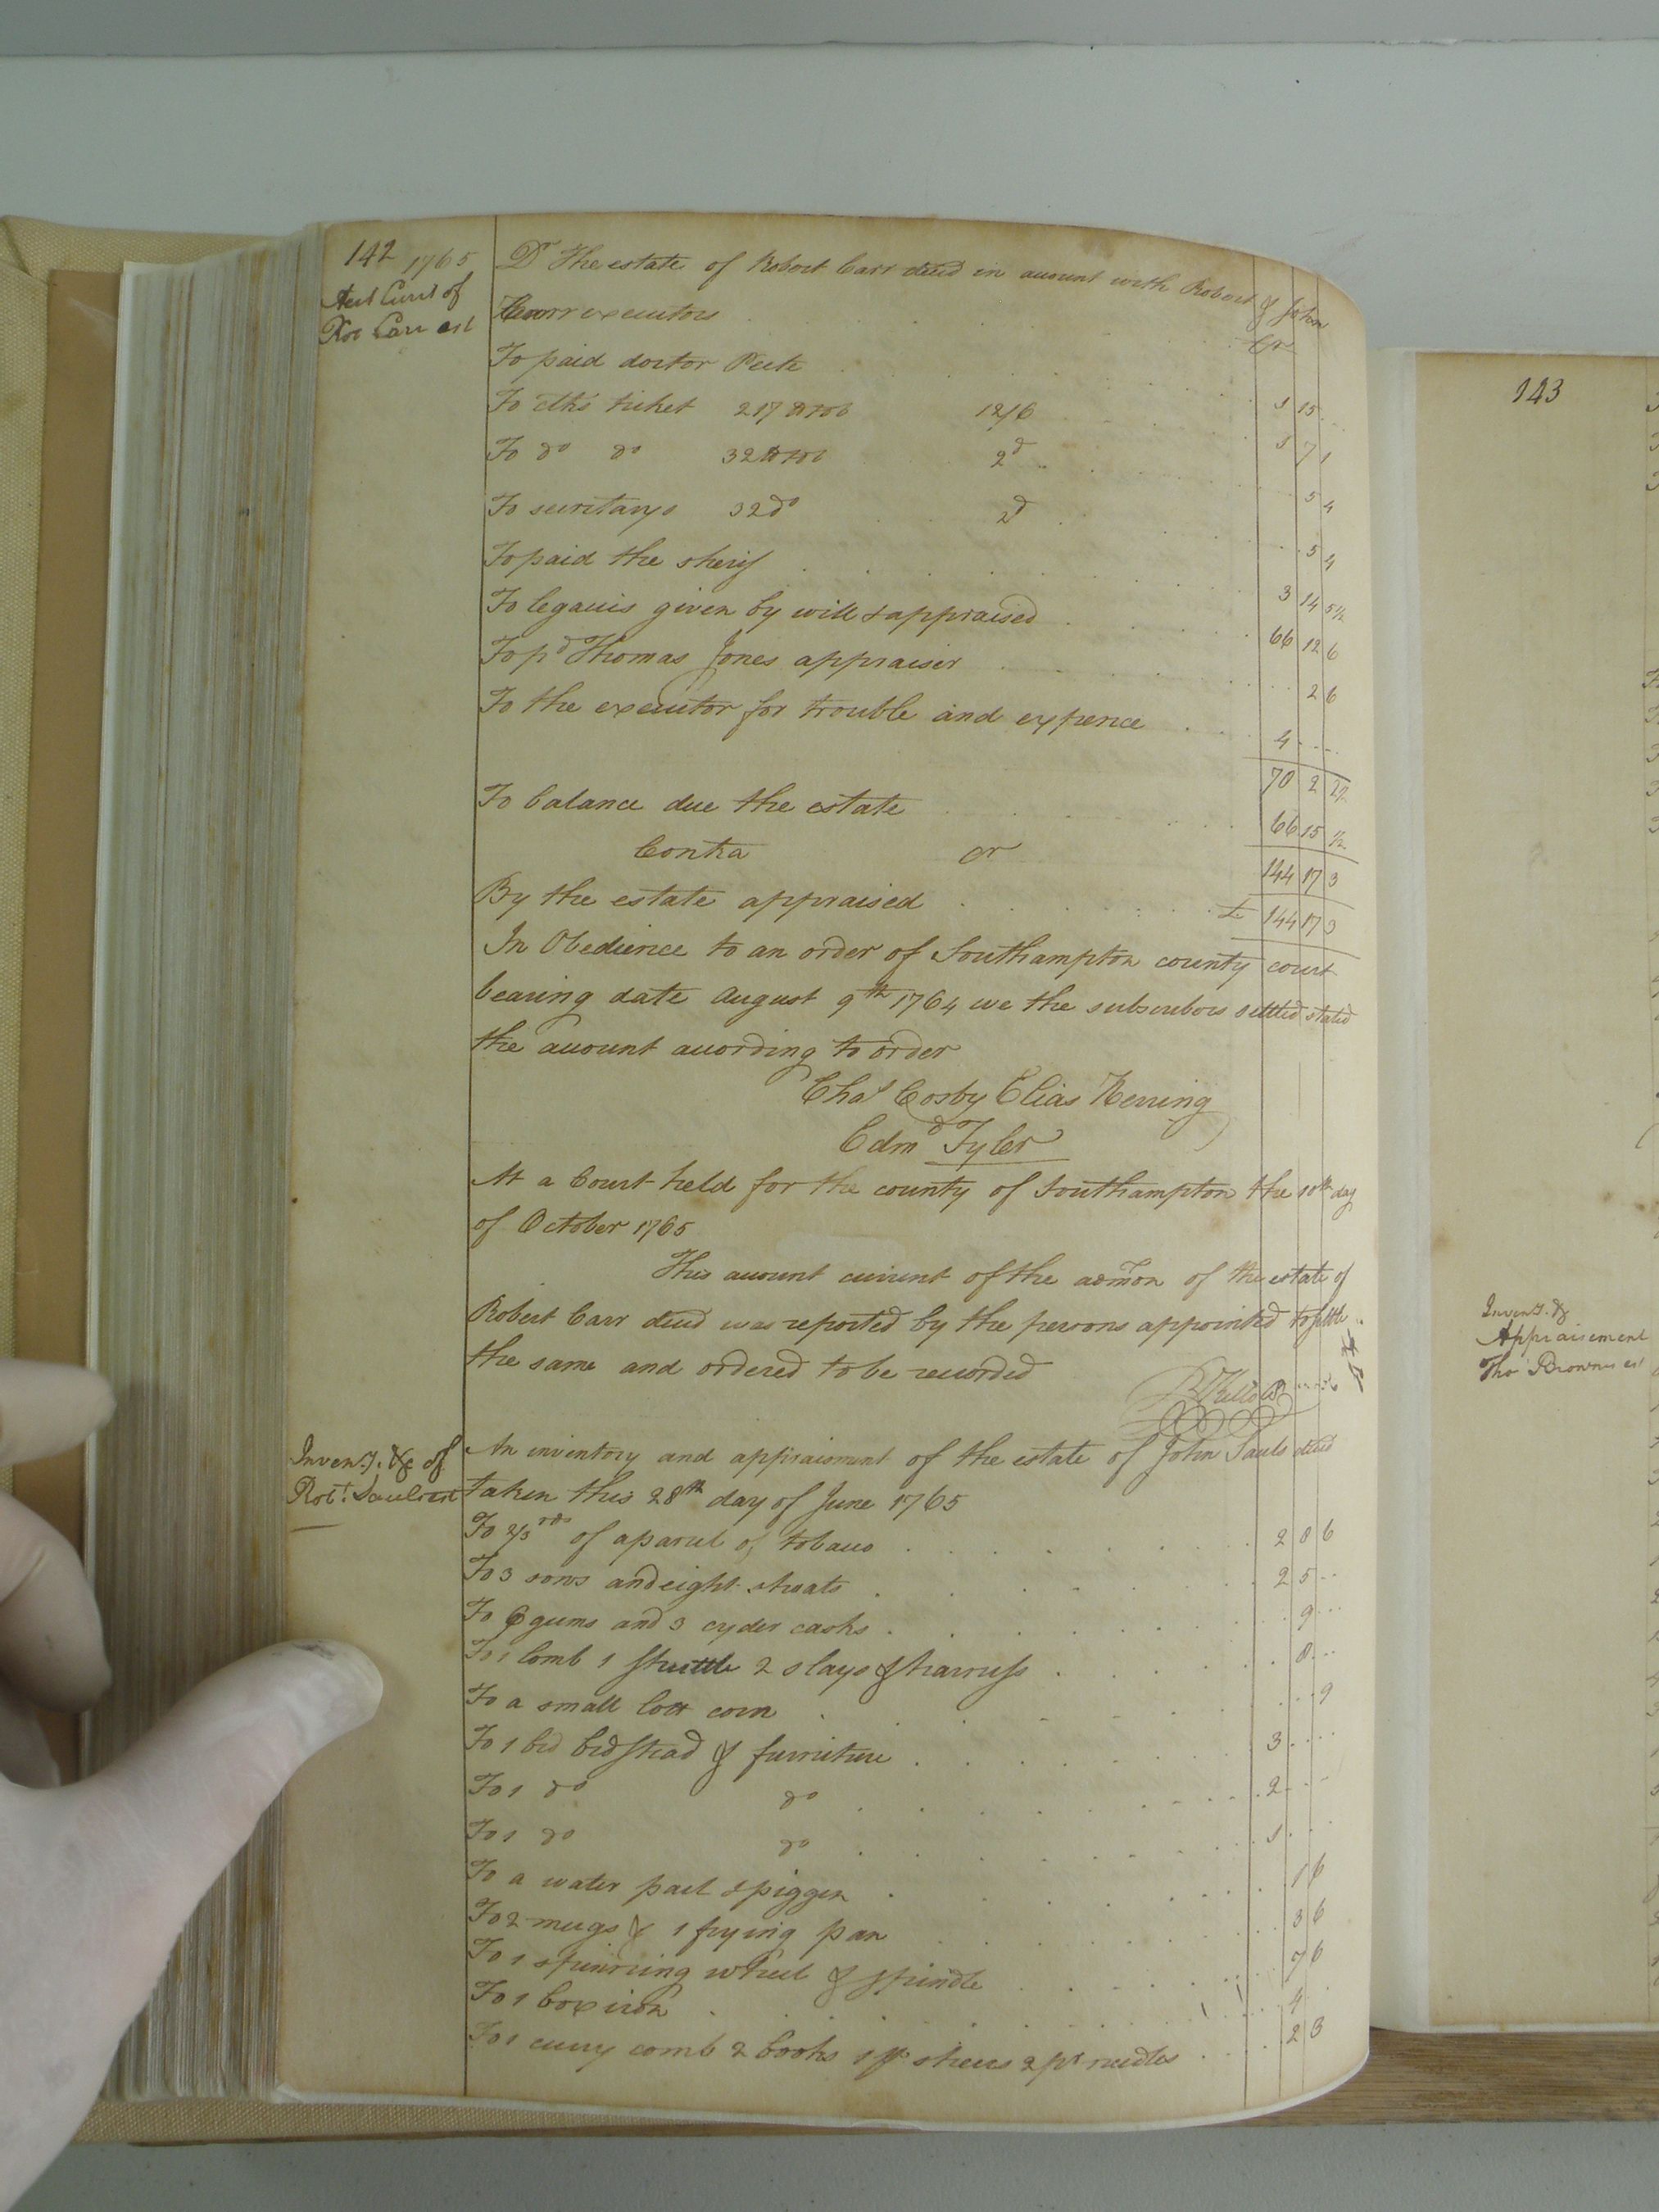 142 1765
Acct Curt of
Ro: Carr est
Dr The estate of Robert Carr decd in account with Robert & John
Carr executors Cr
To paid doctor Peete 1 15
To clks ticket 217 lb tob 12/6 1 7 1
To do do 32 lb tob 2d 5 4
To secretarys 32 do 2d 5 4
To paid the sherif 3 14 5½
To legacies given by will & appraised 66 12 6
To pd Thomas Jones appraiser 2 6
To the executor for trouble and expence 4
70 2 2½
To balance due the estate 66 15 ½
144 17 3
Contra cr
By the estate appraised £ 144 17 3
In Obedience to an order of Southampton county court
bearing date August 9th 1764 we the subscribers settled stated
the account according to order
Chas Cosby Elias Herring
Edmd Tyler
At a Court held for the county of Southampton the 10th day
of October 1765
This account current of the admon of the estate of
Robert Carr decd was reported by the persons appointed to settle
the same and ordered to be recorded
An inventory and appraisment of the estate of John Sauls decd
Inven.y. &c of
Rot. Sauls est
taken this 28th day of June 1765
To 2/3rds of a parcel of tobacco 2 8 6
To 3 sows and eight shoats 2 5
To 6 gums and 3 cyder casks 9
To 1 lomb 1 shuttle 2 slays & harness 8
To a small lott corn 9
To 1 bed bedstead & furniture 3
To 1 do do 2
To 1 do do 1
To a water pail & piggen 1 6
To 2 mugs & 1 frying pan 3 6
To 1 spinning wheel & spindle 7 6
To 1 box iron 4
To 1 curry comb 2 books 1 pr sheers 2 pr needles 2 3
143
Inven.y. &
Appraisement
Tho Browns est